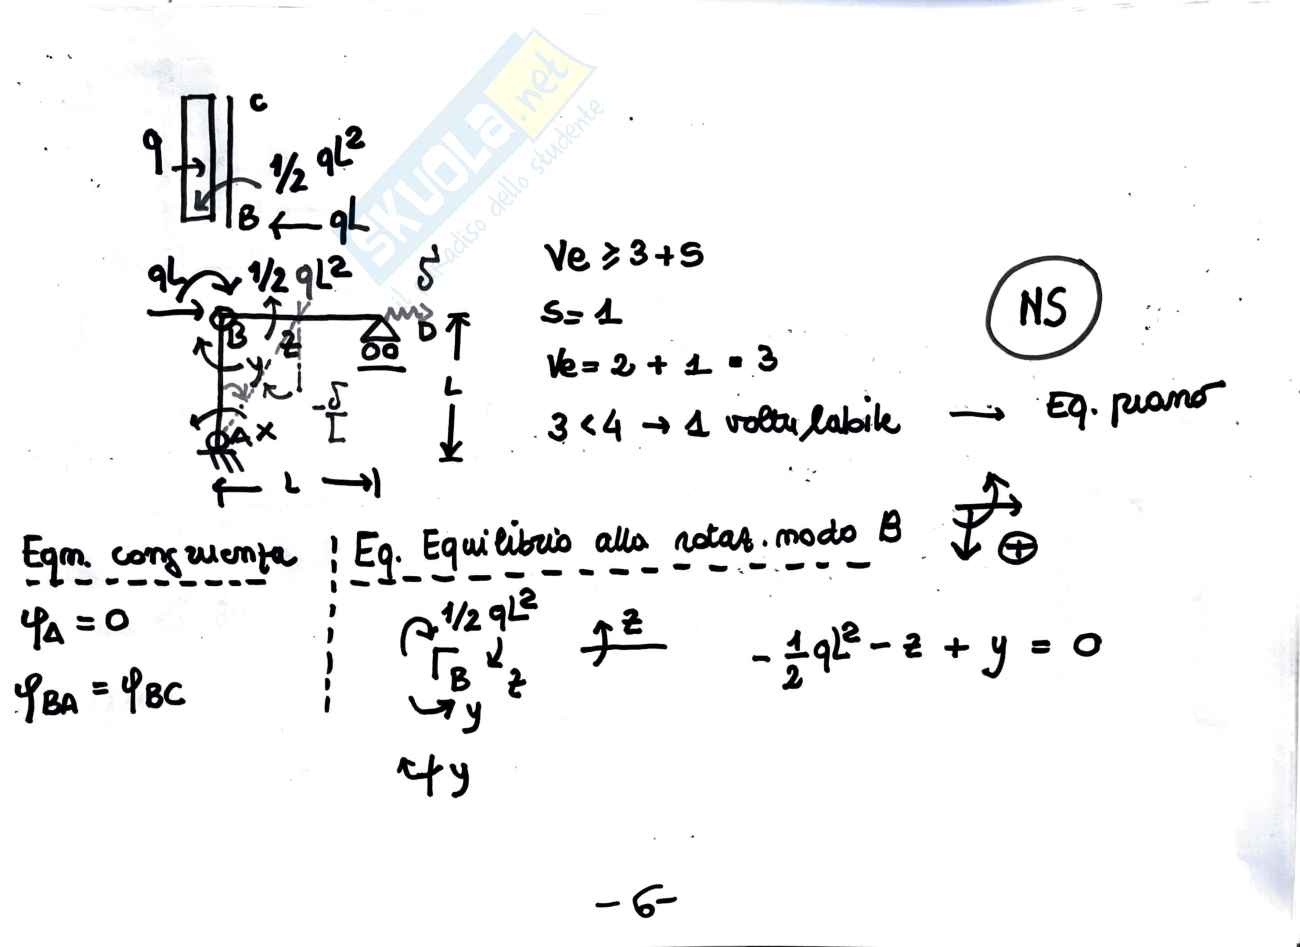 C
q
1/2 qL²
B ← qL
qL 1/2 qL² δ
B Z D
y
-δ/L
L
A X
L
Ve ≥ 3 + S
S = 1
Ve = 2 + 1 = 3
3 < 4 → 1 volta labile → Eq. piano
NS
Eqn. congruenza
φA = 0
φBA = φBC
Eq. Equilibrio alla rotaz. nodo B
⊕
1/2 qL²
B z
y
y
z
- 1/2 qL² - z + y = 0
- 6 -
SKUOLA.net
il paradiso dello studente